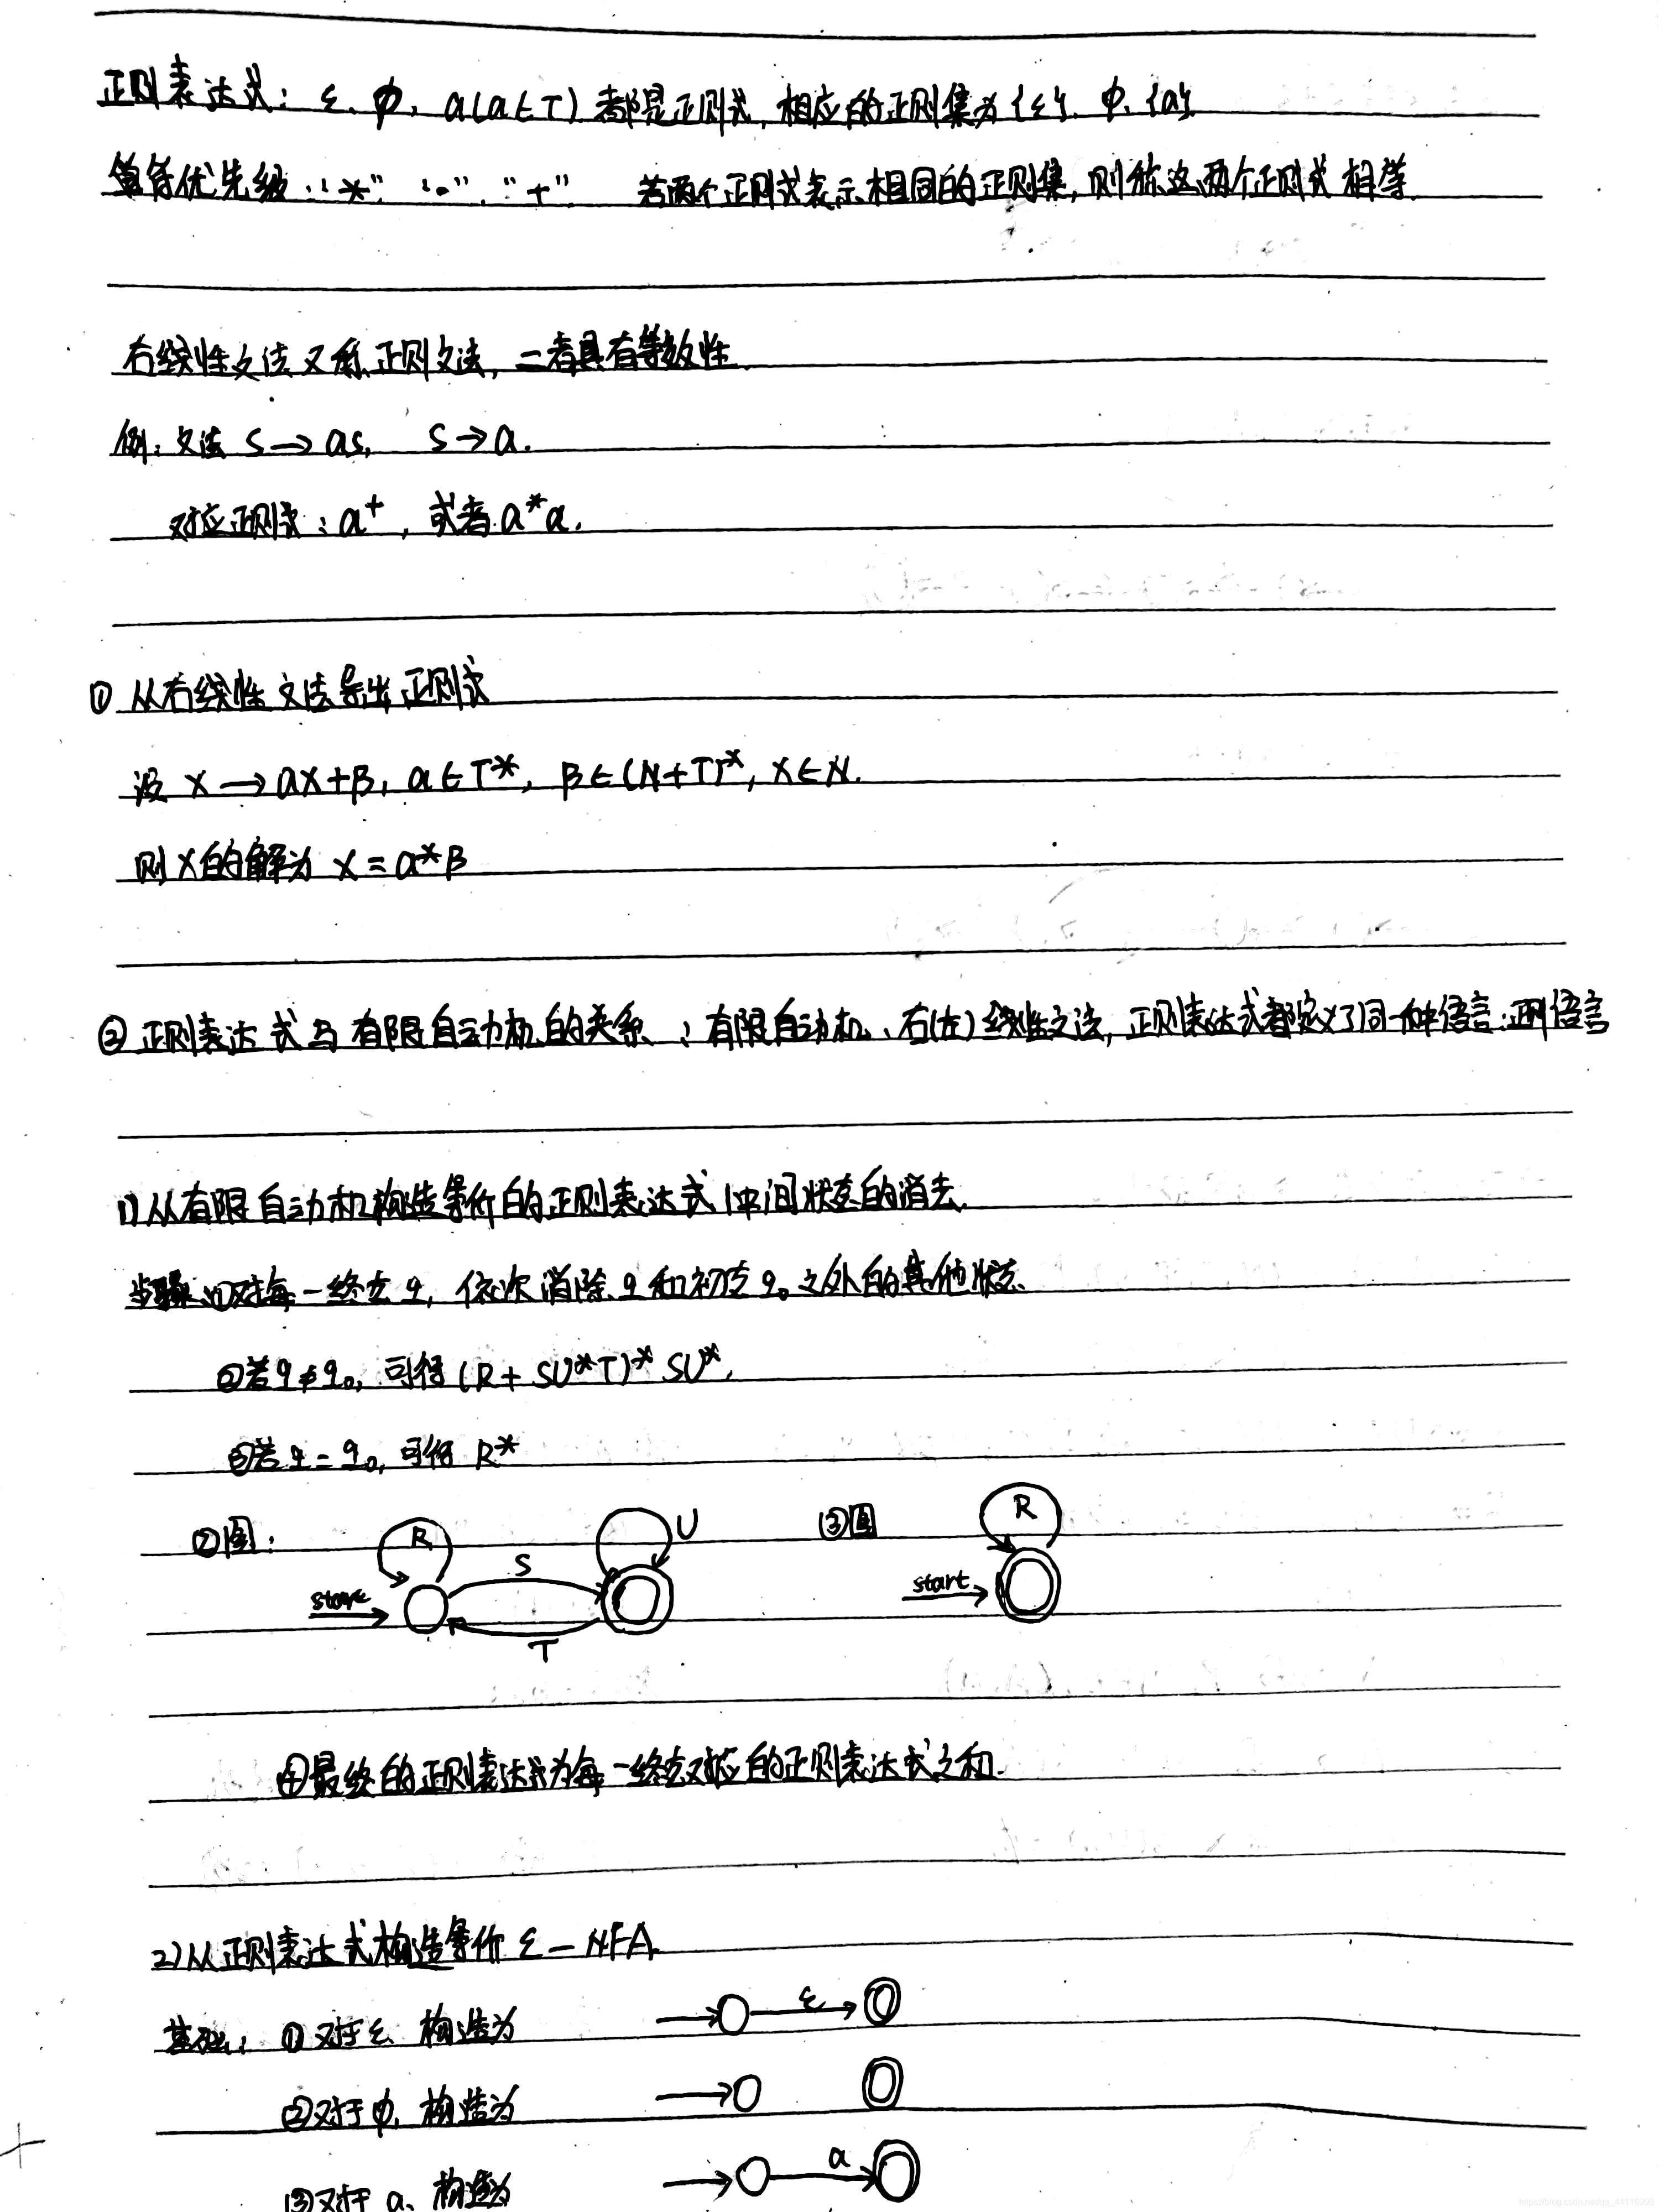 正则表达式: ε、φ, a(a∈T)都是正则式, 相应的正则集为{ε}、φ、{a}.
算符优先级: "*"、"·"、"+". 若两个正则式表示相同的正则集, 则称这两个正则式相等.
右线性文法又称正则文法, 二者具有等效性.
例: 文法 S→aS, S→a.
对应正则式: a⁺, 或者 a*a.
① 从右线性文法导出正则式
设 X→aX+β, a∈T*, β∈(N+T)*, X∈N.
则X的解为 X=a*β
② 正则表达式与有限自动机的关系: 有限自动机、右(左)线性文法, 正则表达式都定义了同一种语言: 正则语言
1) 从有限自动机构造等价的正则表达式 中间状态的消去.
步骤 ①对每一终态q, 依次消除q和初态q₀之外的其他状态.
②若q≠q₀, 可得 (R+SU*T)*SU*.
③若q=q₀, 可得 R*
②图: start R S T U
③图 start R
④最终的正则表达式为每一终态对应的正则表达式之和.
2) 从正则表达式构造等价 ε-NFA.
基础: ①对于ε, 构造为 ε
②对于φ, 构造为
③对于a, 构造为 a